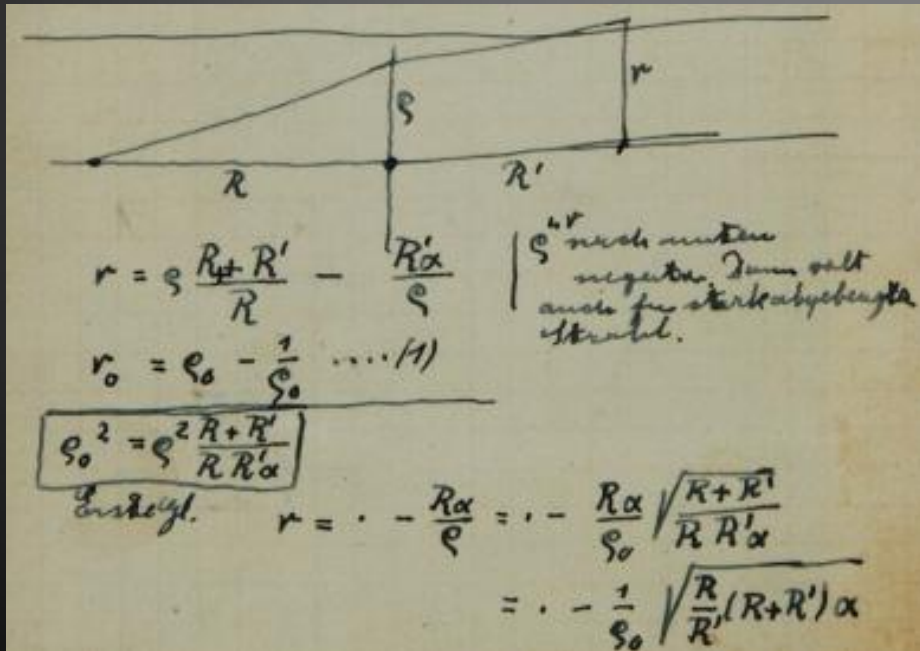 ρ
r
R
R'
r = ρ (R + R')/R − R'α/ρ
ρ, r nach unten
negativ. Dann
auch für stark abgebeugten
Strahl.
r₀ = ρ₀ − 1/ρ₀ ....(1)
ρ₀² = ρ² (R + R')/(R R'α)
r = · − Rα/ρ = · − Rα/ρ₀ √((R + R')/(R R'α))
= · − 1/ρ₀ √(R/R' (R + R') α)